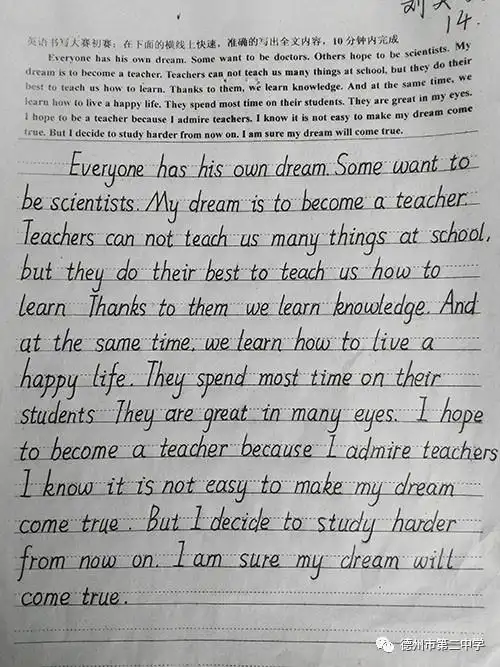 14.
英语书写大赛初赛：在下面的横线上快速，准确的写出全文内容，10分钟内完成
Everyone has his own dream. Some want to be doctors. Others hope to be scientists. My
dream is to become a teacher. Teachers can not teach us many things at school, but they do their
best to teach us how to learn. Thanks to them, we learn knowledge. And at the same time, we
learn how to live a happy life. They spend most time on their students. They are great in my eyes.
I hope to be a teacher because I admire teachers. I know it is not easy to make my dream come
true. But I decide to study harder from now on. I am sure my dream will come true.
Everyone has his own dream. Some want to
be scientists. My dream is to become a teacher.
Teachers can not teach us many things at school,
but they do their best to teach us how to
learn Thanks to them we learn knowledge. And
at the same time, we learn how to live a
happy life. They spend most time on their
students They are great in many eyes. I hope
to become a teacher because I admire teachers
I know it is not easy to make my dream
come true. But I decide to study harder
from now on. I am sure my dream will
come true.
德州市第二中学